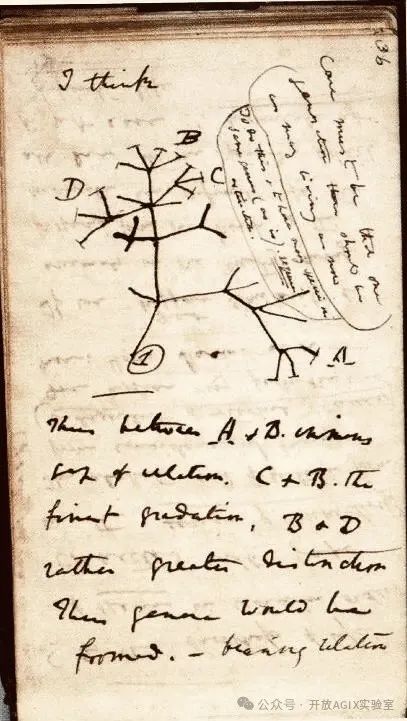 36
I think
Case must be that one
generation then should be
as many living as now
To do this & to have many species in
same genus (as is) requires
extinction.
B
C
D
A
1
Thus between A & B. immens
gap of relation. C & B. the
finest gradation, B & D
rather greater distinction
Thus genera would be
formed. — bearing relation
公众号 · 开放AGIX实验室